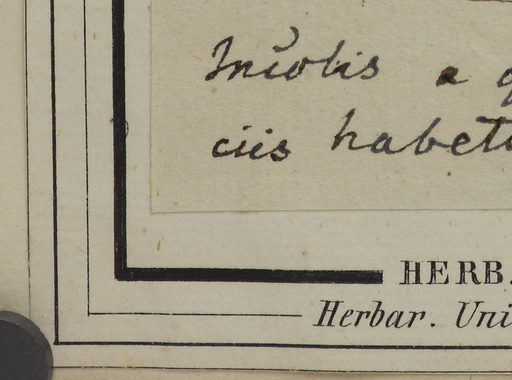 Incolis a
ciis habet
HERB.
Herbar. Uni